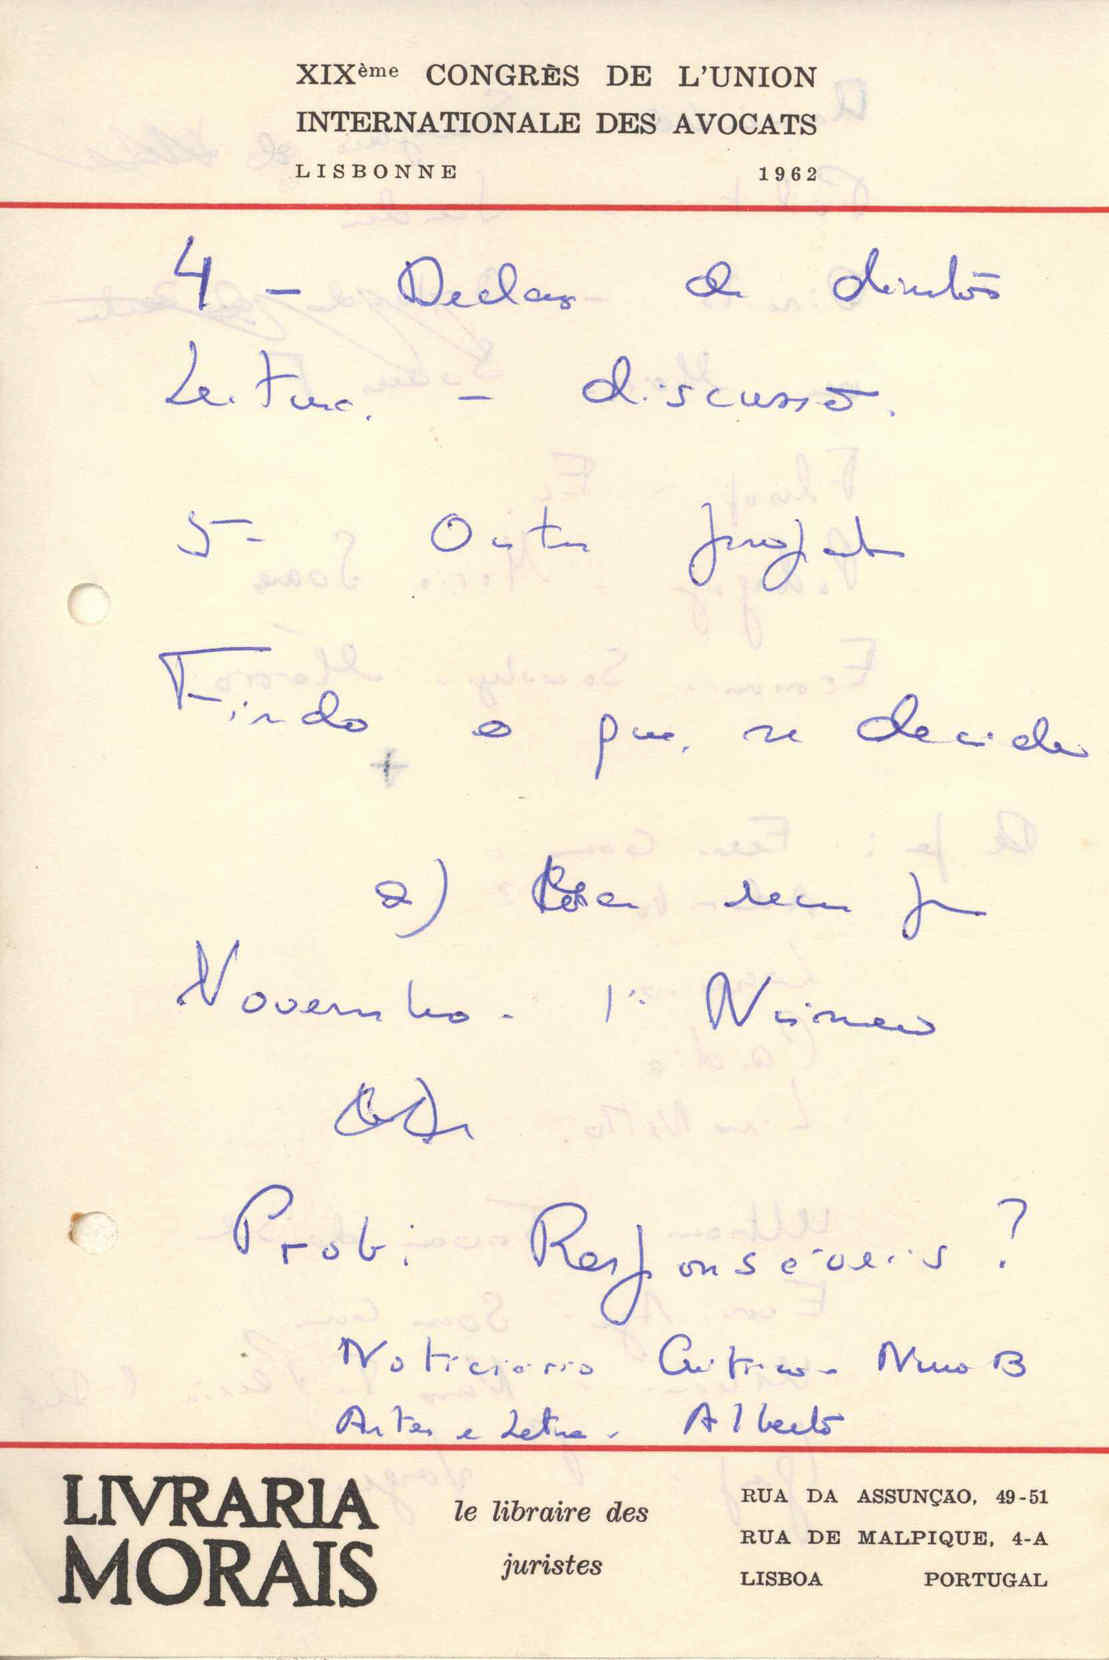 XIXème CONGRÈS DE L'UNION
INTERNATIONALE DES AVOCATS
LISBONNE 1962
4 - de direitos
Leitura. - discussão.
5 - Outro projecto
Findo o que, se decide
a) sem
Novembro. 1º Número
Prob. Responsáveis ?
Noticiário Crítico - Nuno B
Artes e Letras - Alberto
LIVRARIA
MORAIS
le libraire des
juristes
RUA DA ASSUNÇÃO, 49-51
RUA DE MALPIQUE, 4-A
LISBOA PORTUGAL